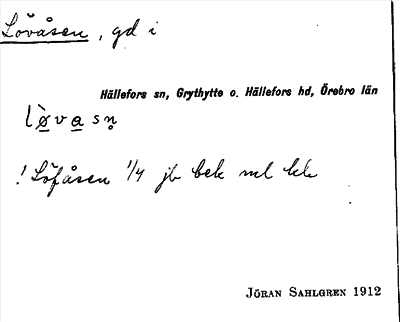 Lövåsen, gd i
Hällefors sn, Grythytte o. Hällefors hd, Örebro län
lø̀vasn̥
! Löfåsen 1/4 jb bek ml kk
JÖRAN SAHLGREN 1912